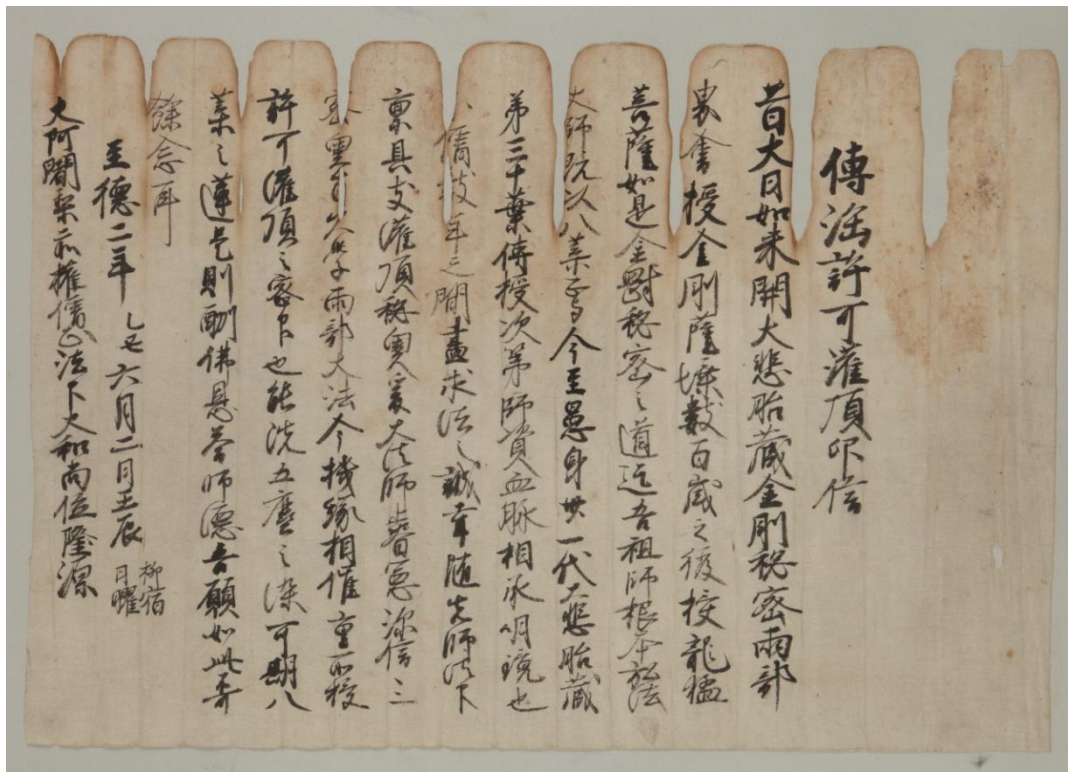 傳法許可灌頂印信
昔大日如来開大悲胎蔵金剛秘密兩部
界會授金剛薩埵數百歳之後授龍猛
菩薩如是金剛秘密之道迄吾祖師根本弘法
大師既以八葉焉今至愚身卅一代大悲胎蔵
第三十葉傳授次第師資血脈相承明鏡也
年之間盡求法之誠幸隨先師法下
稟具支灌頂秘奥爰大法師
兩部大法今機縁相催重所授
許可灌頂之密印也能洗五塵之染可期八
葉之蓮是則酬佛恩答師徳吾願如此不可
餘念耳
至徳二年乙丑六月二日壬辰 柳宿 日曜
大阿闍梨前権僧正法下大和尚位隆源